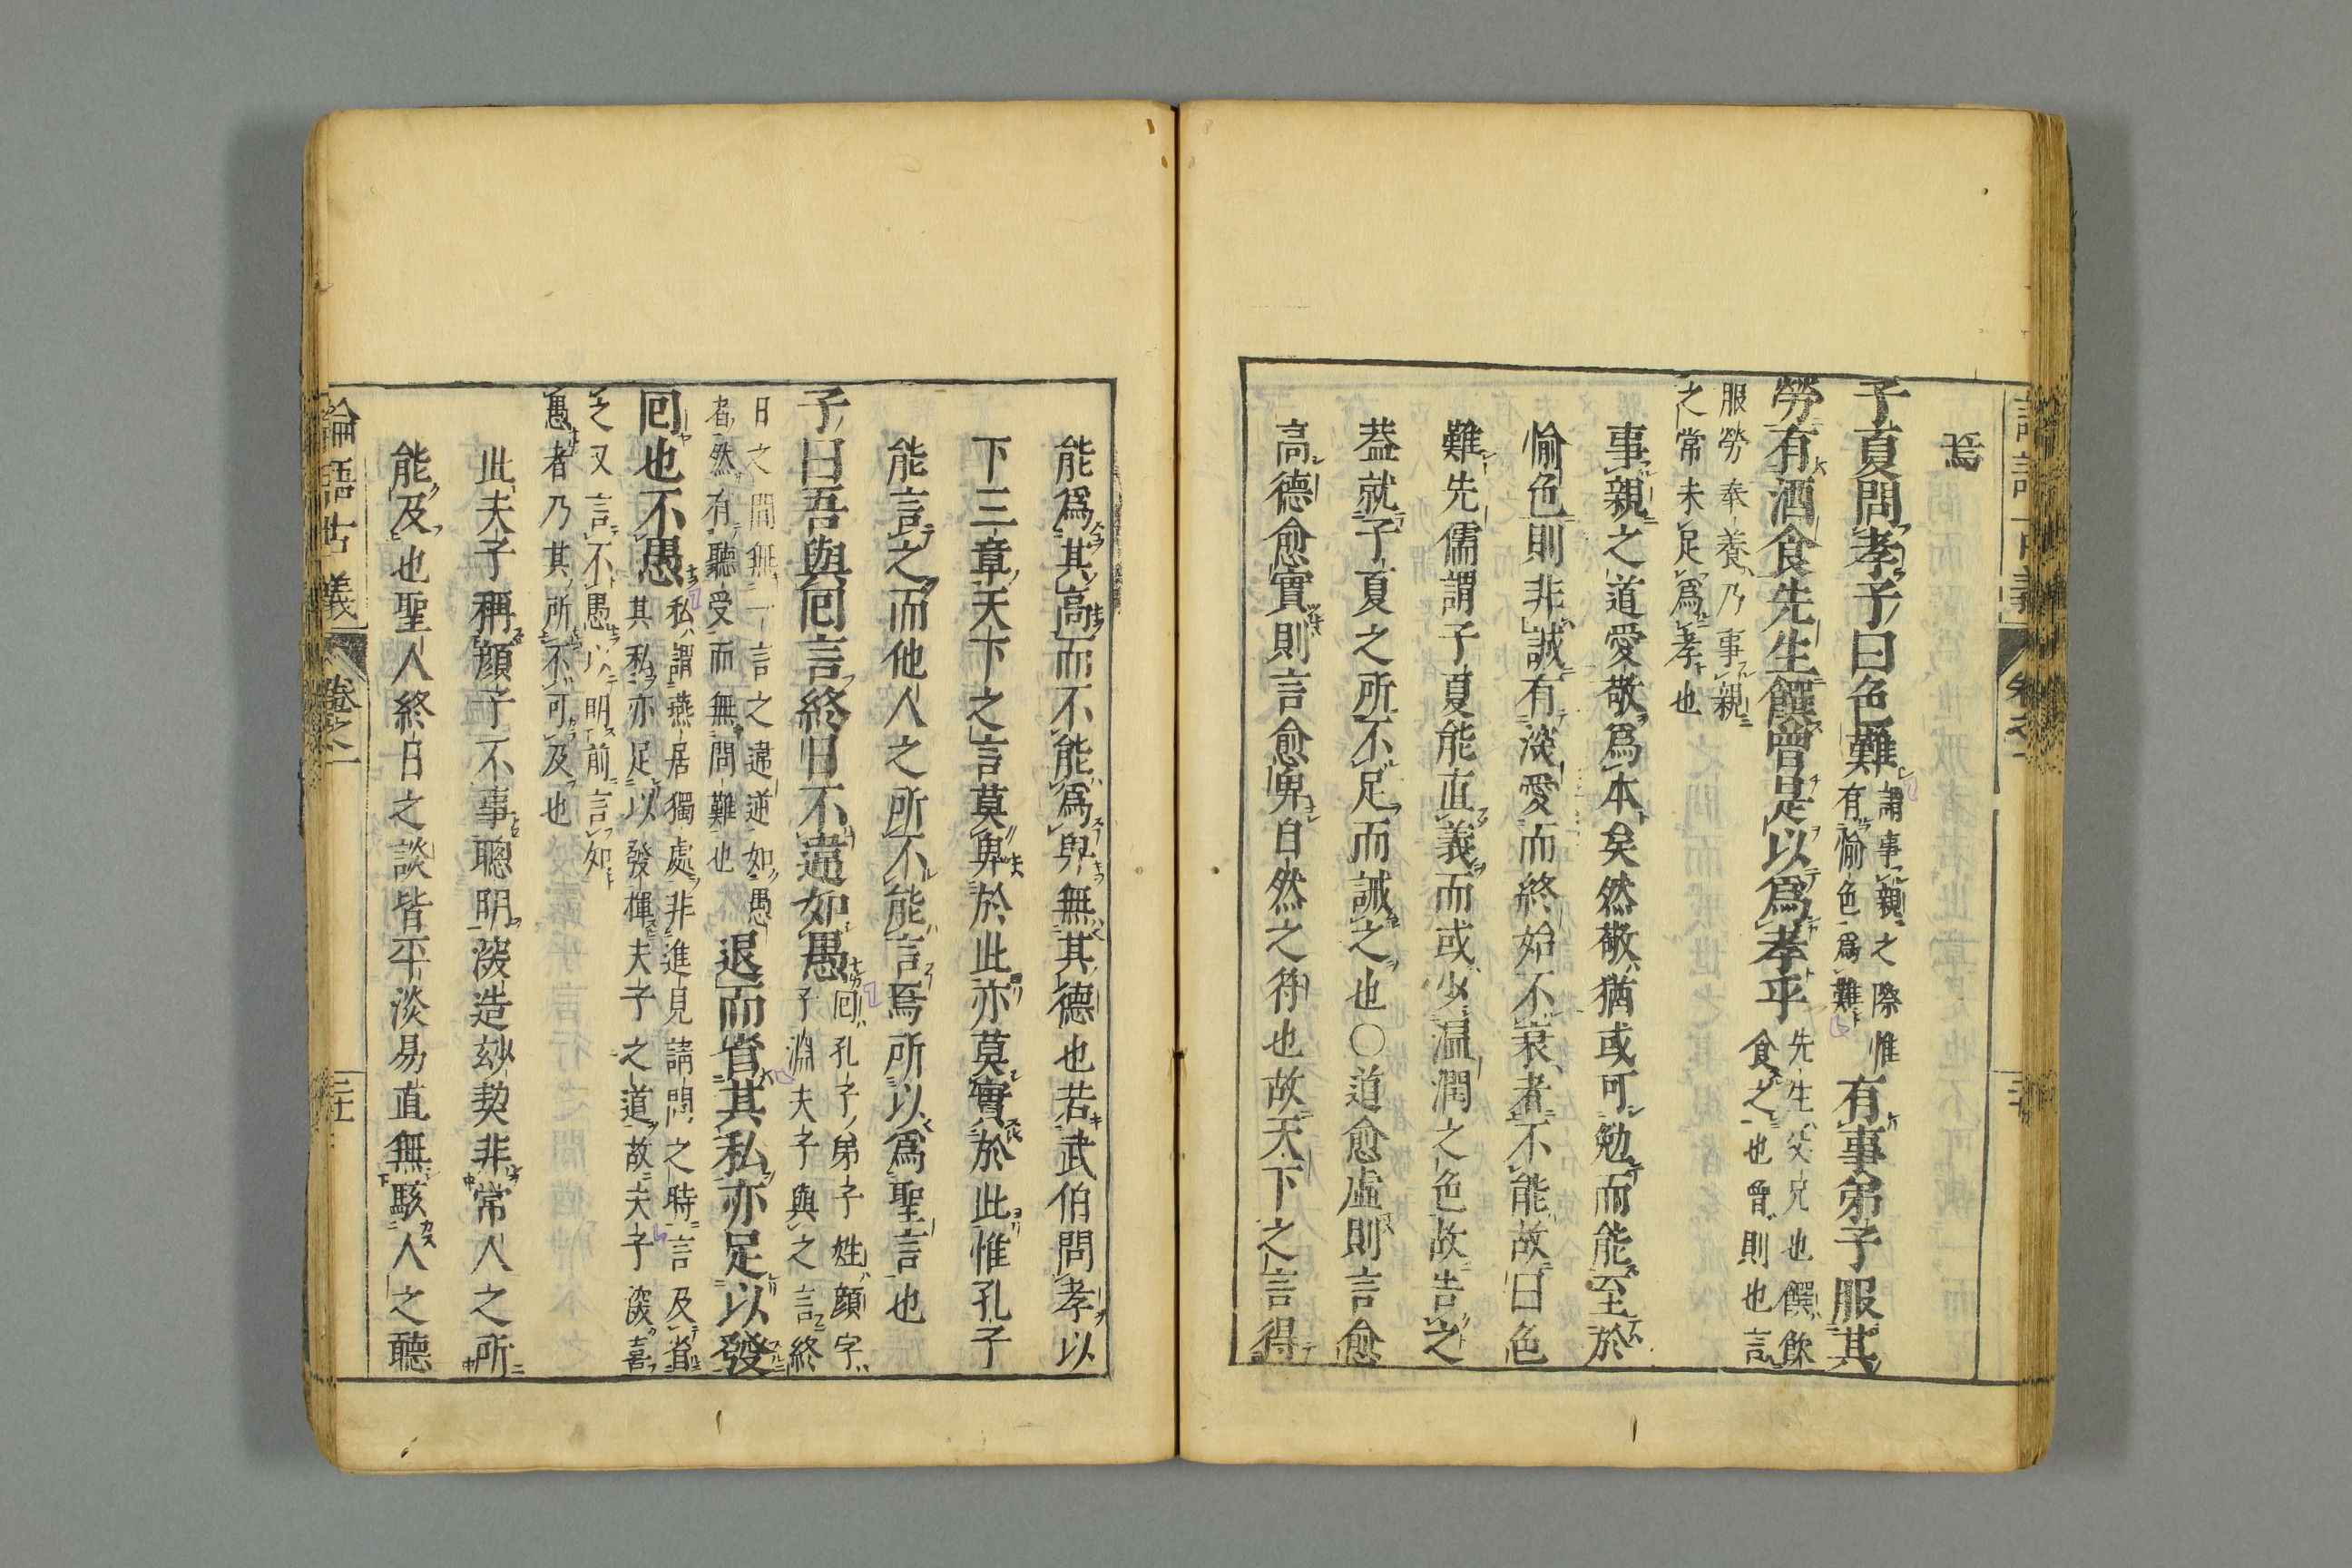 焉
子夏問孝子曰色難謂事親之際惟有愉色為難有事弟子服其
勞有酒食先生饌曾是以爲孝乎先生父兄也饌飲食之也曾則也言
服勞奉養乃事親之常未足爲孝也
事親之道愛敬爲本矣然敬猶或可勉而能至於
愉色則非誠有深愛而終始不衰者不能故曰色
難先儒謂子夏能直義而或少温潤之色故告之
葢就子夏之所不足而誡之也○道愈虛則言愈
高德愈實則言愈卑自然之符也故天下之言得
能爲其高而不能爲與無其德也若武伯問孝以
下三章天下之言莫卑於此亦莫實於此惟孔子
能言之而他人之所不能言焉所以爲聖言也
子曰吾與囘言終日不違如愚囘孔子弟子姓顔字子淵夫子與之言終
日之間無一言之違逆如愚者然有聽受而無問難也退而省其私亦足以發
囘也不愚私謂燕居獨處非進見請問之時言及省其私亦足以發揮夫子之道故夫子深喜
之又言不愚以明前言如愚者乃其所不可及也
此夫子稱顔子不事聰明深造玅契非常人之所
能及也聖人終日之談皆平淡易直無駭人之聽
論語古義 卷之一